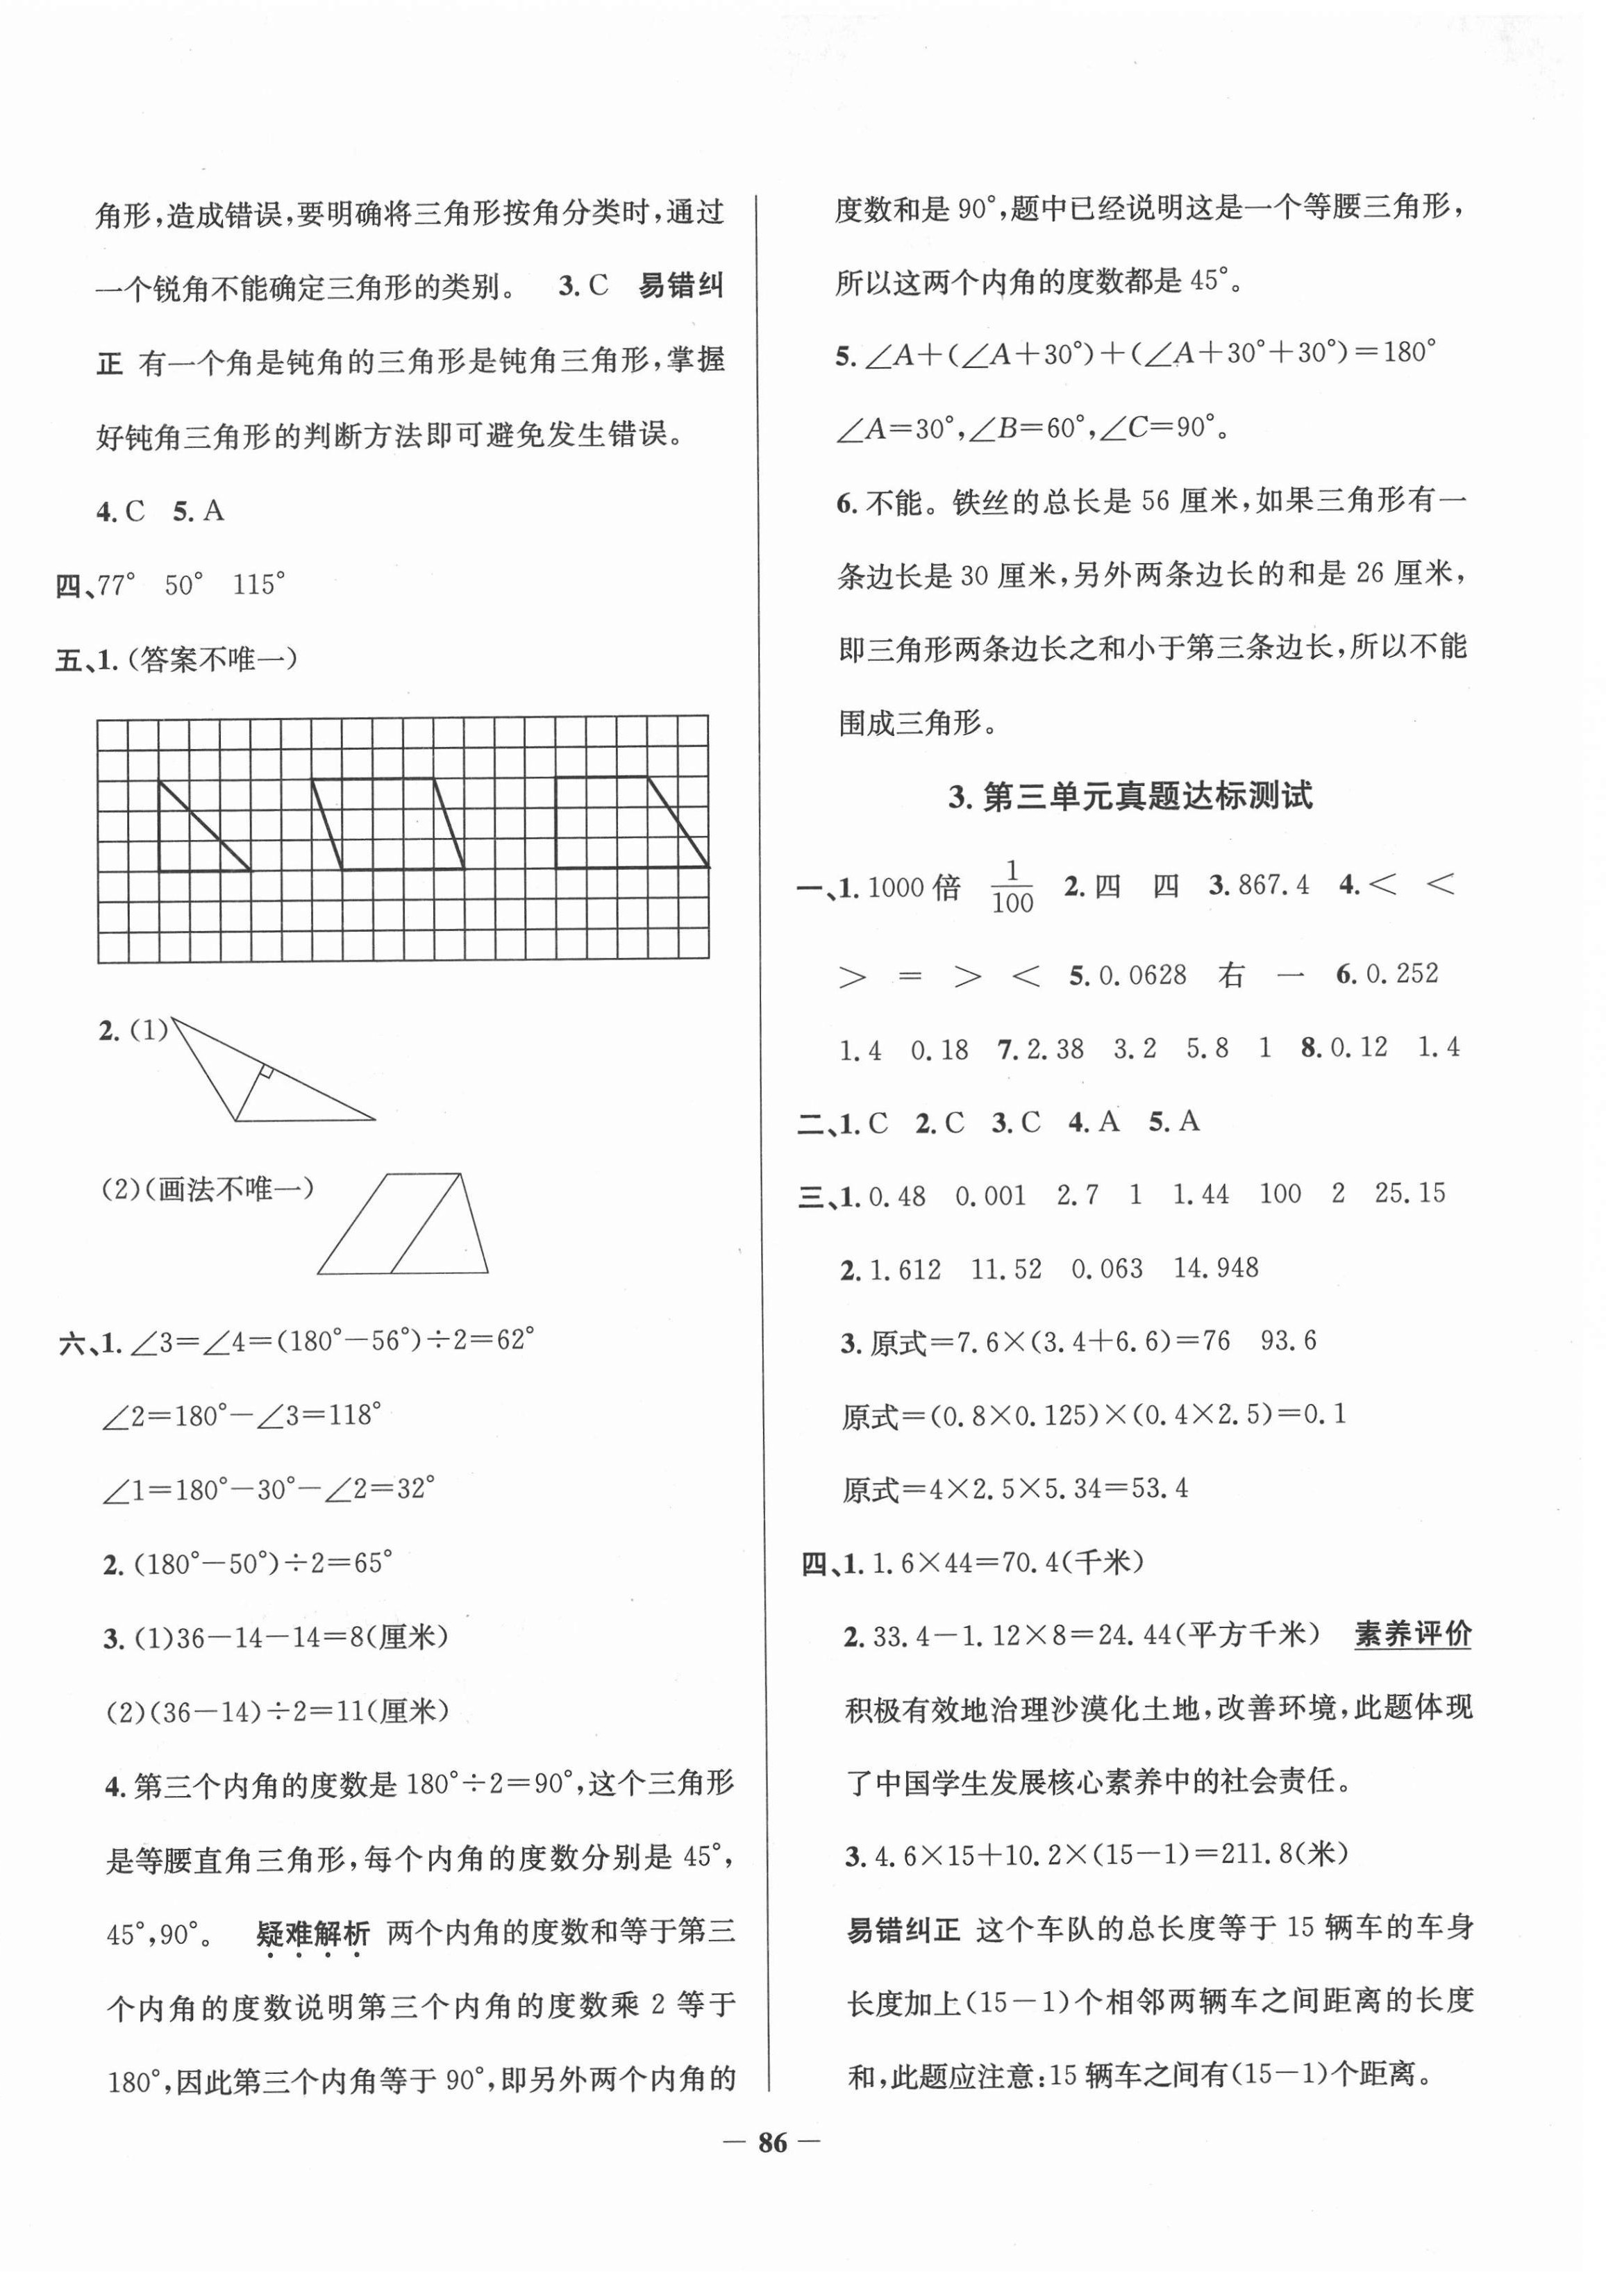 角形,造成错误,要明确将三角形按角分类时,通过
一个锐角不能确定三角形的类别。 3. C 易错纠
正 有一个角是钝角的三角形是钝角三角形,掌握
好钝角三角形的判断方法即可避免发生错误。
4. C 5. A
四、77° 50° 115°
五、1. (答案不唯一)
2. (1)
(2)(画法不唯一)
六、1. ∠3=∠4=(180°-56°)÷2=62°
∠2=180°-∠3=118°
∠1=180°-30°-∠2=32°
2. (180°-50°)÷2=65°
3. (1)36-14-14=8(厘米)
(2)(36-14)÷2=11(厘米)
4. 第三个内角的度数是 180°÷2=90°,这个三角形
是等腰直角三角形,每个内角的度数分别是 45°,
45°,90°。 疑难解析 两个内角的度数和等于第三
个内角的度数说明第三个内角的度数乘 2 等于
180°,因此第三个内角等于 90°,即另外两个内角的
度数和是 90°,题中已经说明这是一个等腰三角形,
所以这两个内角的度数都是 45°。
5. ∠A+(∠A+30°)+(∠A+30°+30°)=180°
∠A=30°,∠B=60°,∠C=90°。
6. 不能。铁丝的总长是 56 厘米,如果三角形有一
条边长是 30 厘米,另外两条边长的和是 26 厘米,
即三角形两条边长之和小于第三条边长,所以不能
围成三角形。
3. 第三单元真题达标测试
一、1. 1000 倍 1/100 2. 四 四 3. 867.4 4. < <
> = > < 5. 0.0628 右 一 6. 0.252
1.4 0.18 7. 2.38 3.2 5.8 1 8. 0.12 1.4
二、1. C 2. C 3. C 4. A 5. A
三、1. 0.48 0.001 2.7 1 1.44 100 2 25.15
2. 1.612 11.52 0.063 14.948
3. 原式=7.6×(3.4+6.6)=76 93.6
原式=(0.8×0.125)×(0.4×2.5)=0.1
原式=4×2.5×5.34=53.4
四、1. 1.6×44=70.4(千米)
2. 33.4-1.12×8=24.44(平方千米) 素养评价
积极有效地治理沙漠化土地,改善环境,此题体现
了中国学生发展核心素养中的社会责任。
3. 4.6×15+10.2×(15-1)=211.8(米)
易错纠正 这个车队的总长度等于 15 辆车的车身
长度加上(15-1)个相邻两辆车之间距离的长度
和,此题应注意:15 辆车之间有(15-1)个距离。
— 86 —